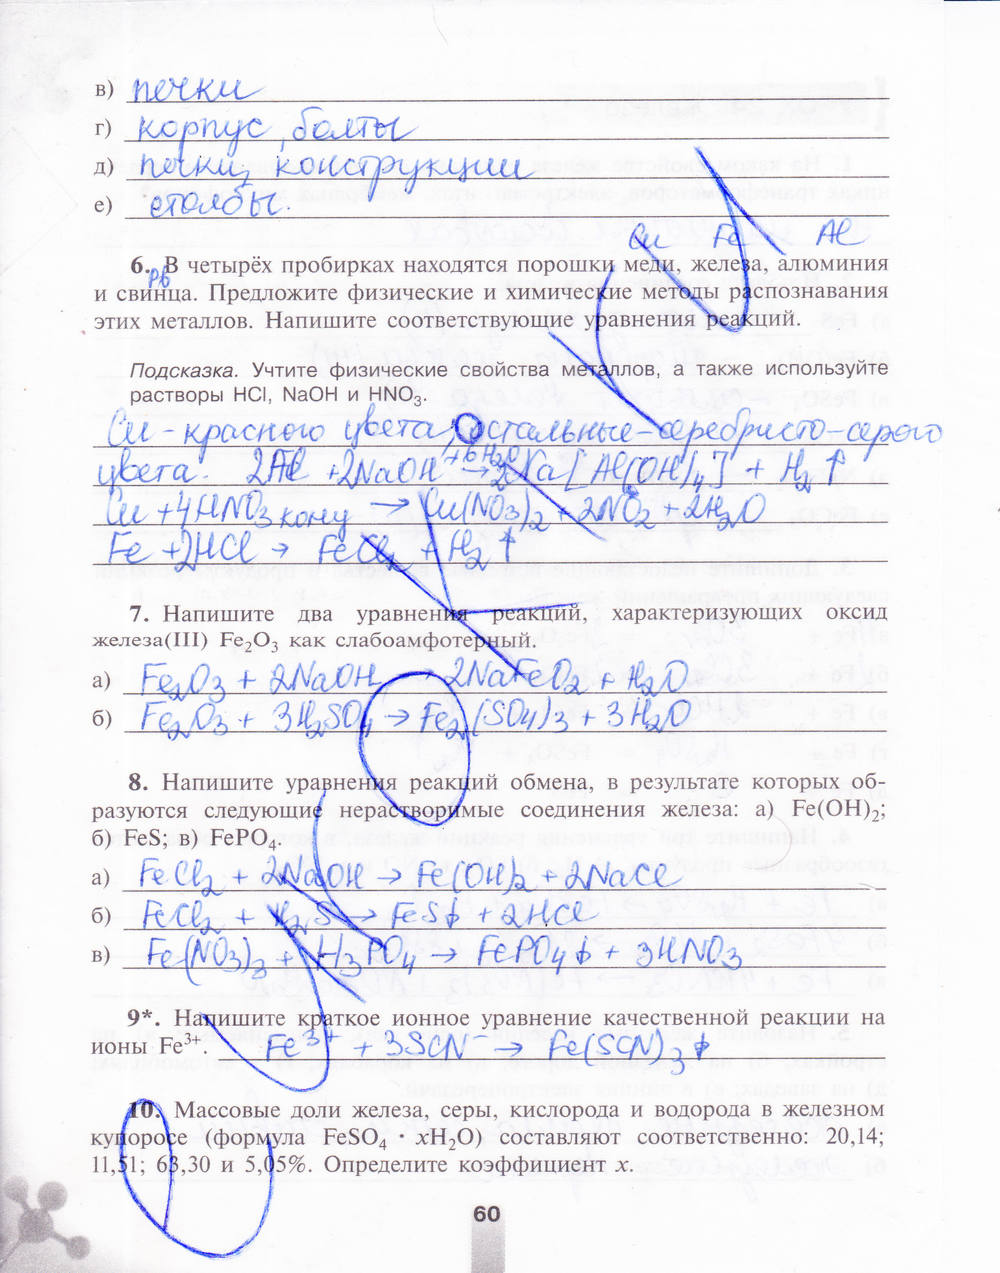 в) печки
г) корпус, болты
д) печки, конструкции
е) столбы.
Cu Fe Al
6. В четырёх пробирках находятся порошки меди, железа, алюминия
Pb
и свинца. Предложите физические и химические методы распознавания
этих металлов. Напишите соответствующие уравнения реакций.
Подсказка. Учтите физические свойства металлов, а также используйте
растворы HCl, NaOH и HNO₃.
Cu - красного цвета, остальные - серебристо-серого
цвета. 2Al + 2NaOH +6H₂O → 2Na[Al(OH)₄] + H₂↑
Cu + 4HNO₃ конц → Cu(NO₃)₂ + 2NO₂ + 2H₂O
Fe + 2HCl → FeCl₂ + H₂↑
7. Напишите два уравнения реакций, характеризующих оксид
железа(III) Fe₂O₃ как слабоамфотерный.
а) Fe₂O₃ + 2NaOH → 2NaFeO₂ + H₂O
б) Fe₂O₃ + 3H₂SO₄ → Fe₂(SO₄)₃ + 3H₂O
8. Напишите уравнения реакций обмена, в результате которых об-
разуются следующие нерастворимые соединения железа: а) Fe(OH)₂;
б) FeS; в) FePO₄.
а) FeCl₂ + 2NaOH → Fe(OH)₂ + 2NaCl
б) FeCl₂ + H₂S → FeS↓ + 2HCl
в) Fe(NO₃)₃ + H₃PO₄ → FePO₄↓ + 3HNO₃
9*. Напишите краткое ионное уравнение качественной реакции на
ионы Fe³⁺. Fe³⁺ + 3SCN⁻ → Fe(SCN)₃↓
10. Массовые доли железа, серы, кислорода и водорода в железном
купоросе (формула FeSO₄ · xH₂O) составляют соответственно: 20,14;
11,51; 63,30 и 5,05%. Определите коэффициент x.
60